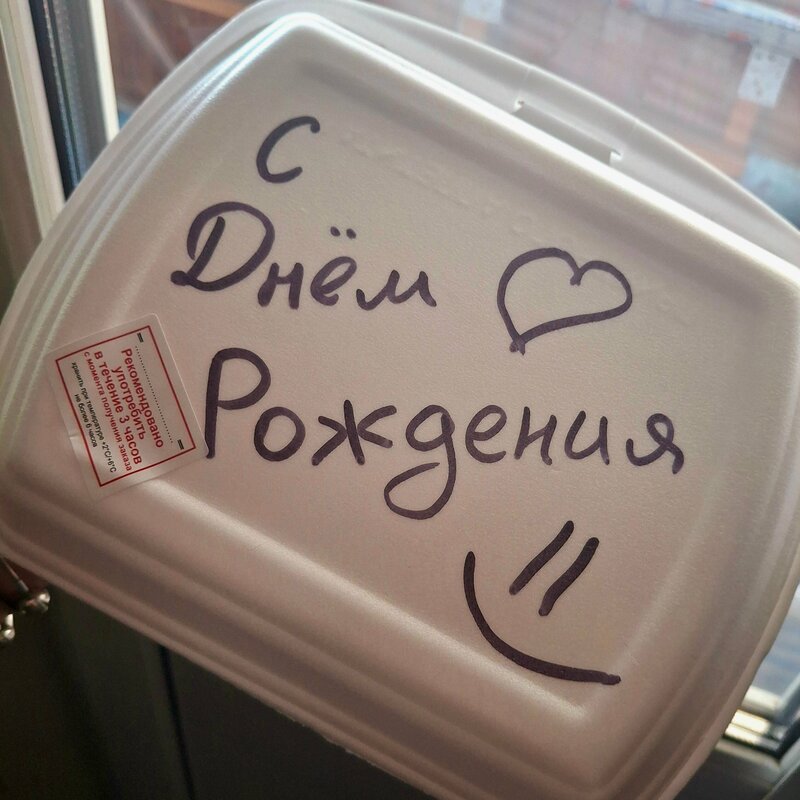 с
Днём
Рождения
Рекомендовано
употребить
в течение 3 часов
с момента получения заказа
хранить при температуре +2°С/+6°С
не более 6 часов